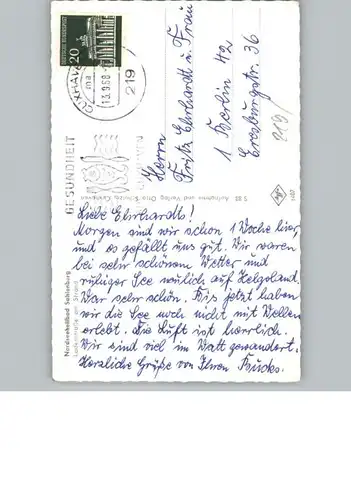 Liebe Ehrhardts!
Morgen sind wir schon 1 Woche hier
und es gefällt uns gut. Wir waren
bei sehr schönem Wetter und
ruhiger See neulich auf Helgoland.
War sehr schön. Bis jetzt haben
wir die See noch nicht mit Wellen
erlebt. Die Luft ist herrlich.
Wir sind viel im Watt gewandert.
Herzliche Grüße von Ihren
Herrn
Fritz Ehrhardt u. Frau
1 Berlin 42
Eresburgstr. 36
219
DEUTSCHE BUNDESPOST
20
CUXHAVEN
13.9.68
219
GESUNDHEIT
Nordseeheilbad Sahlenburg
am Strand
Aufnahme und Verlag Otto